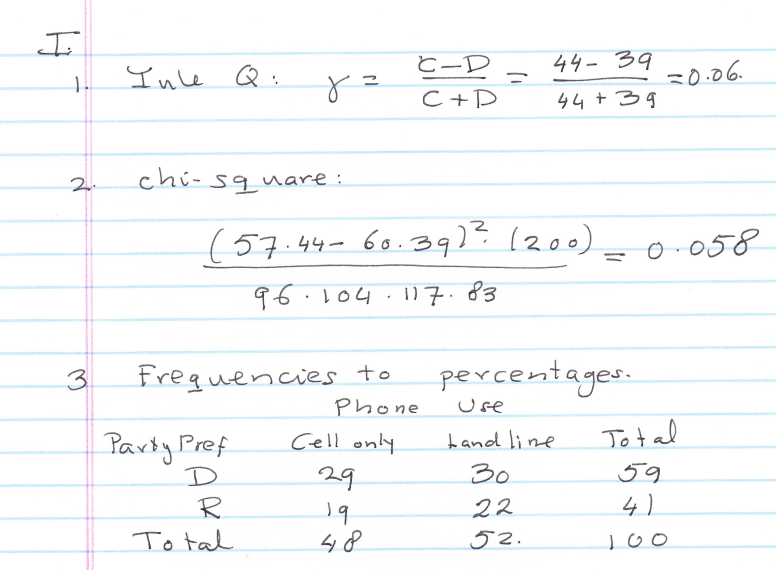 I.
1. Yule Q: γ = C-D / C+D = 44- 39 / 44 + 39 = 0.06.
2. chi-square:
(57·44 - 60·39)² (200) / 96 · 104 · 117 · 83 = 0.058
3 Frequencies to percentages.
Phone Use
Party Pref Cell only Landline Total
D 29 30 59
R 19 22 41
Total 48 52. 100